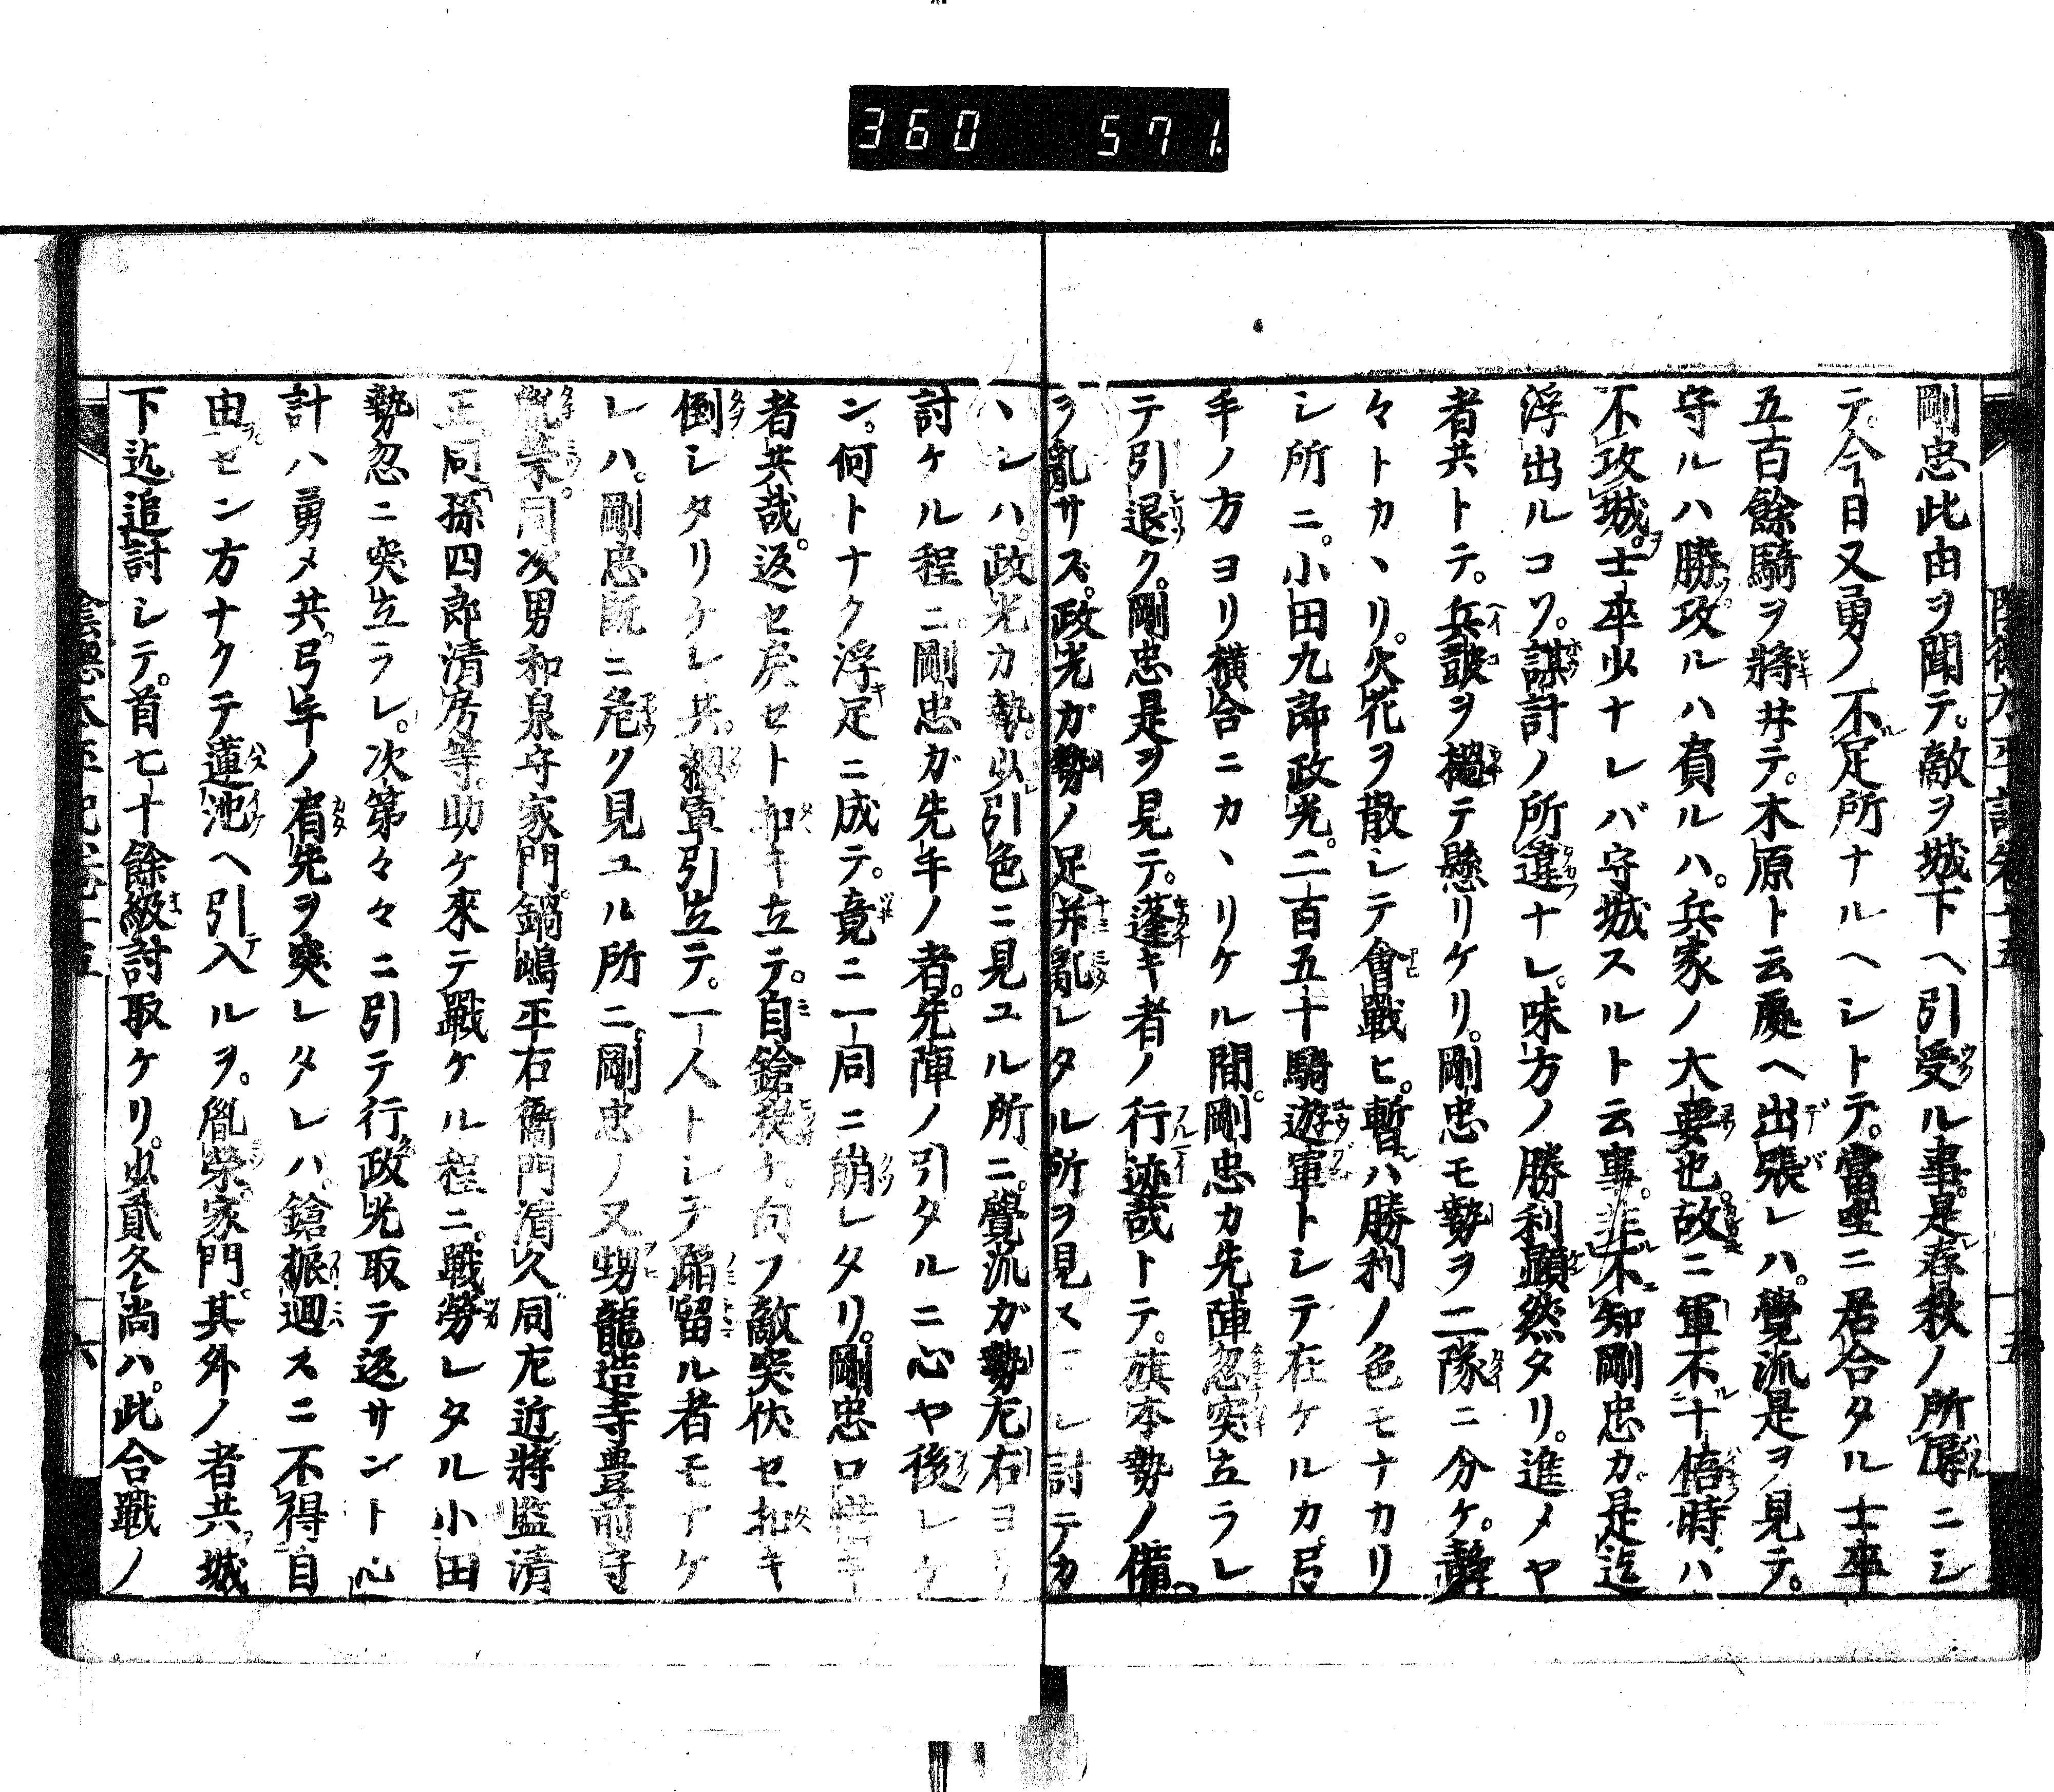 360 571.
剛忠此由ヲ聞テ。敵ヲ城下ヘ引受ル事。是春秋ノ所辱ニシ
テ。今日又勇ノ不足所ナルヘシトテ。當堂ニ居合タル士卒
五百餘騎ヲ將井テ。木原ト云處ヘ出張レハ。覺派是ヲ見テ。
守ルハ勝攻ルハ負ルハ。兵家ノ大要也。故ニ軍不十倍時ハ
不攻城。士卒少ナレバ守城スルト云事。非不知剛忠カ。是迄
浮出ルコソ。謀計ノ所違ナレ。味方ノ勝利顕然タリ。進メヤ
者共トテ。兵鼓ヲ撾テ懸リケリ。剛忠モ勢ヲ二隊ニ分ケ。静
々トカヽリ。火花ヲ散シテ會戰ヒ。暫ハ勝利ノ色モナカリ
シ所ニ。小田九郎政光。二百五十騎遊軍トシテ在ケルカ。弓
手ノ方ヨリ横合ニカヽリケル間。剛忠カ先陣忽突立ラレ
テ引退ク。剛忠是ヲ見テ。蓬キ者ノ行迹哉トテ。旗本勢ノ備。
ヲ亂サス。政光ガ勢ノ足並亂レタル所ヲ見スニシ討テカ
ヽレハ。政光カ勢。少引色ニ見ユル所ニ。覺派ガ勢左右ヨリ
討ケル程ニ。剛忠ガ先手ノ者。先陣ノ引タルニ心ヤ後レケ
ン。何トナク浮足ニ成テ。竟ニ一同ニ崩レタリ。剛忠口惜キ
者共哉。返セ戻セト扣キ立テ。自鎗狭ケ。向フ敵突伏セ扣キ
倒シタリケレ共。總軍引立テ。一人トシテ踏留ル者モナケ
レハ。剛忠既ニ危ク見ユル所ニ。剛忠ノ又甥龍造寺豊前守
胤榮。同次男和泉守家門。鍋嶋平右衞門清久。同左近將監清
正。同孫四郎清房等。助ケ來テ戰ケル程ニ。戰勞レタル小田
勢忽ニ突立ラレ。次第々々ニ引テ行。政光取テ返サント心
計ハ勇メ共。弓手ノ肩先ヲ突レタレハ。鎗振廻スニ不得自
由。セン方ナクテ蓮池ヘ引入ルヲ。胤榮。家門。其外ノ者共。城
下迄追討シテ。首七十餘級討取ケリ。少貳冬尚ハ。此合戰ノ
陰德太平記卷十五
六
五